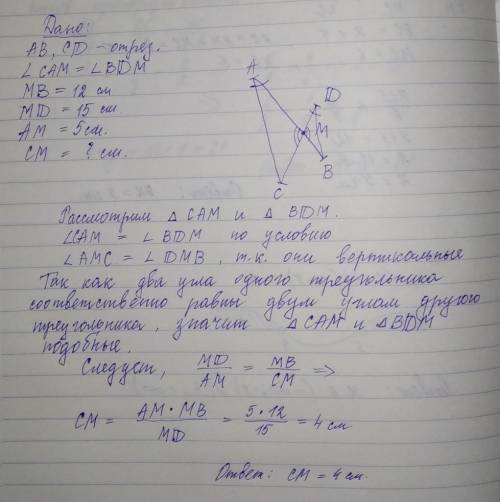 Дано:
AB, CD - отрез.
∠CAM = ∠BDM
MB = 12 см
MD = 15 см
AM = 5 см.
CM = ? см.
A
D
M
B
C
Рассмотрим △ CAM и △ BDM.
∠CAM = ∠BDM по условию
∠AMC = ∠DMB, т.к. они вертикальные
Так как два угла одного треугольника
соответственно равны двум углам другого
треугольника, значит △CAM и △BDM
подобные.
Следует, MD/AM = MB/CM ⇒
CM = AM·MB/MD = 5·12/15 = 4 см
Ответ: CM = 4 см.